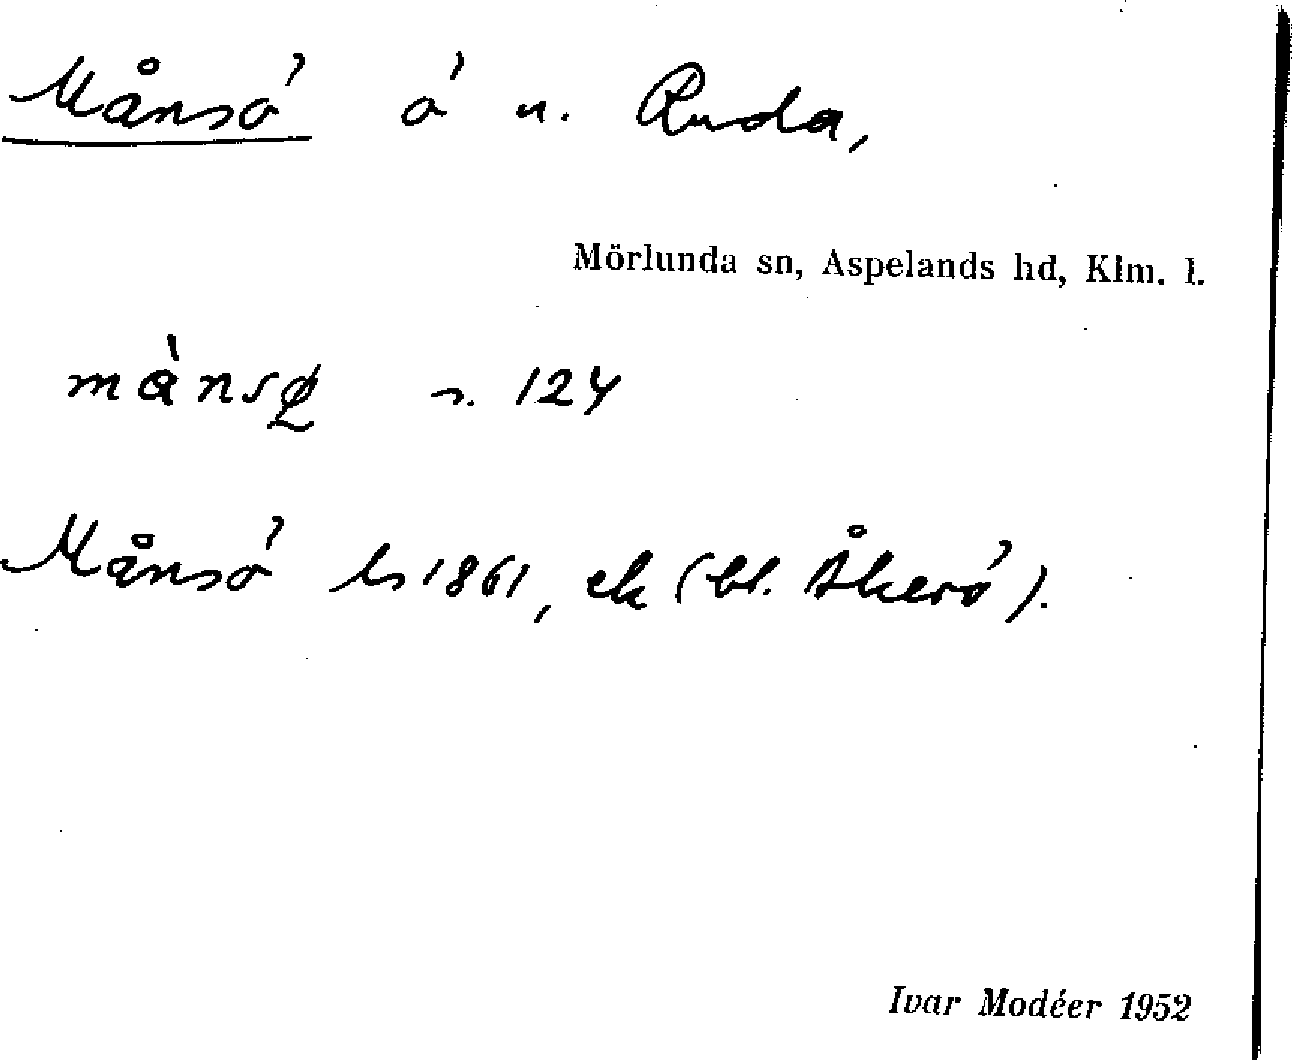 Månsö ö n. Ruda,
Mörlunda sn, Aspelands hd, Klm. l.
månsø s. 124
Månsö ls 1861, ek (bl. Åkerö).
Ivar Modéer 1952